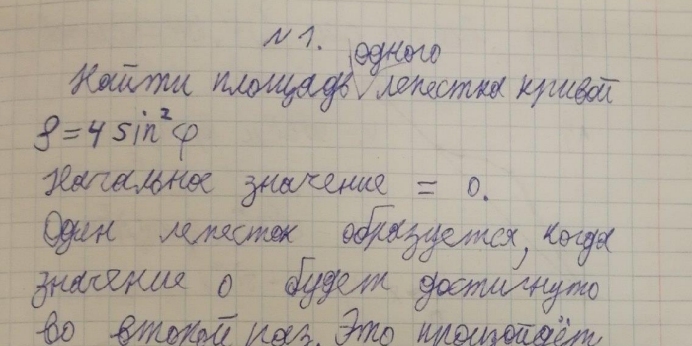 N 1.
одного
Найти площадь лепестка кривой
ρ = 4 sin² φ
Начальное значение = 0.
Один лепесток образуется, когда
значение 0 будет достигнуто
во второй раз. Это произойдёт